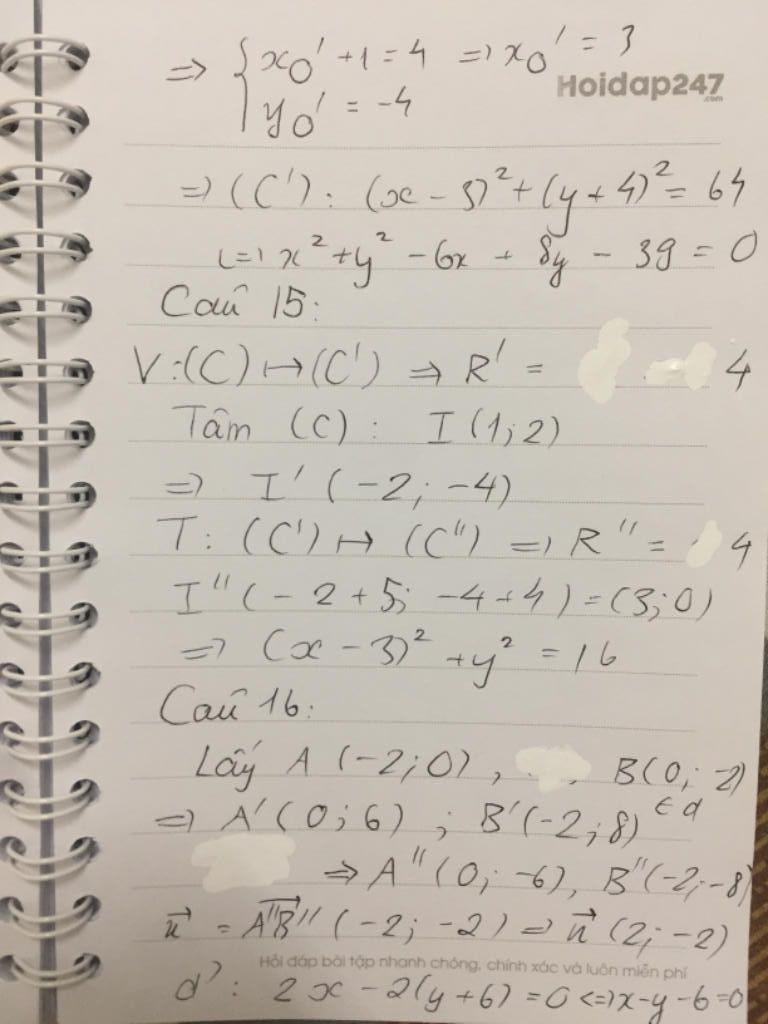 ⇒ { x₀' + 1 = 4 ⇒ x₀' = 3
y₀' = -4
Hoidap247
.com
⇒ (C'): (x - 3)² + (y + 4)² = 64
⇔ x² + y² - 6x + 8y - 39 = 0
Câu 15:
V: (C) ↦ (C') ⇒ R' = 4
Tâm (C): I (1; 2)
⇒ I' (-2; -4)
T: (C') ↦ (C'') ⇒ R'' = 4
I'' (-2 + 5; -4 + 4) = (3; 0)
⇒ (x - 3)² + y² = 16
Câu 16:
Lấy A (-2; 0), , B(0; -2) ∈ d
⇒ A' (0; 6) ; B' (-2; 8)
⇒ A'' (0; -6), B'' (-2; -8)
u⃗ = A''B''⃗ (-2; -2) ⇒ n⃗ (2; -2)
Hỏi đáp bài tập nhanh chóng, chính xác và luôn miễn phí
d': 2x - 2(y + 6) = 0 ⇔ x - y - 6 = 0